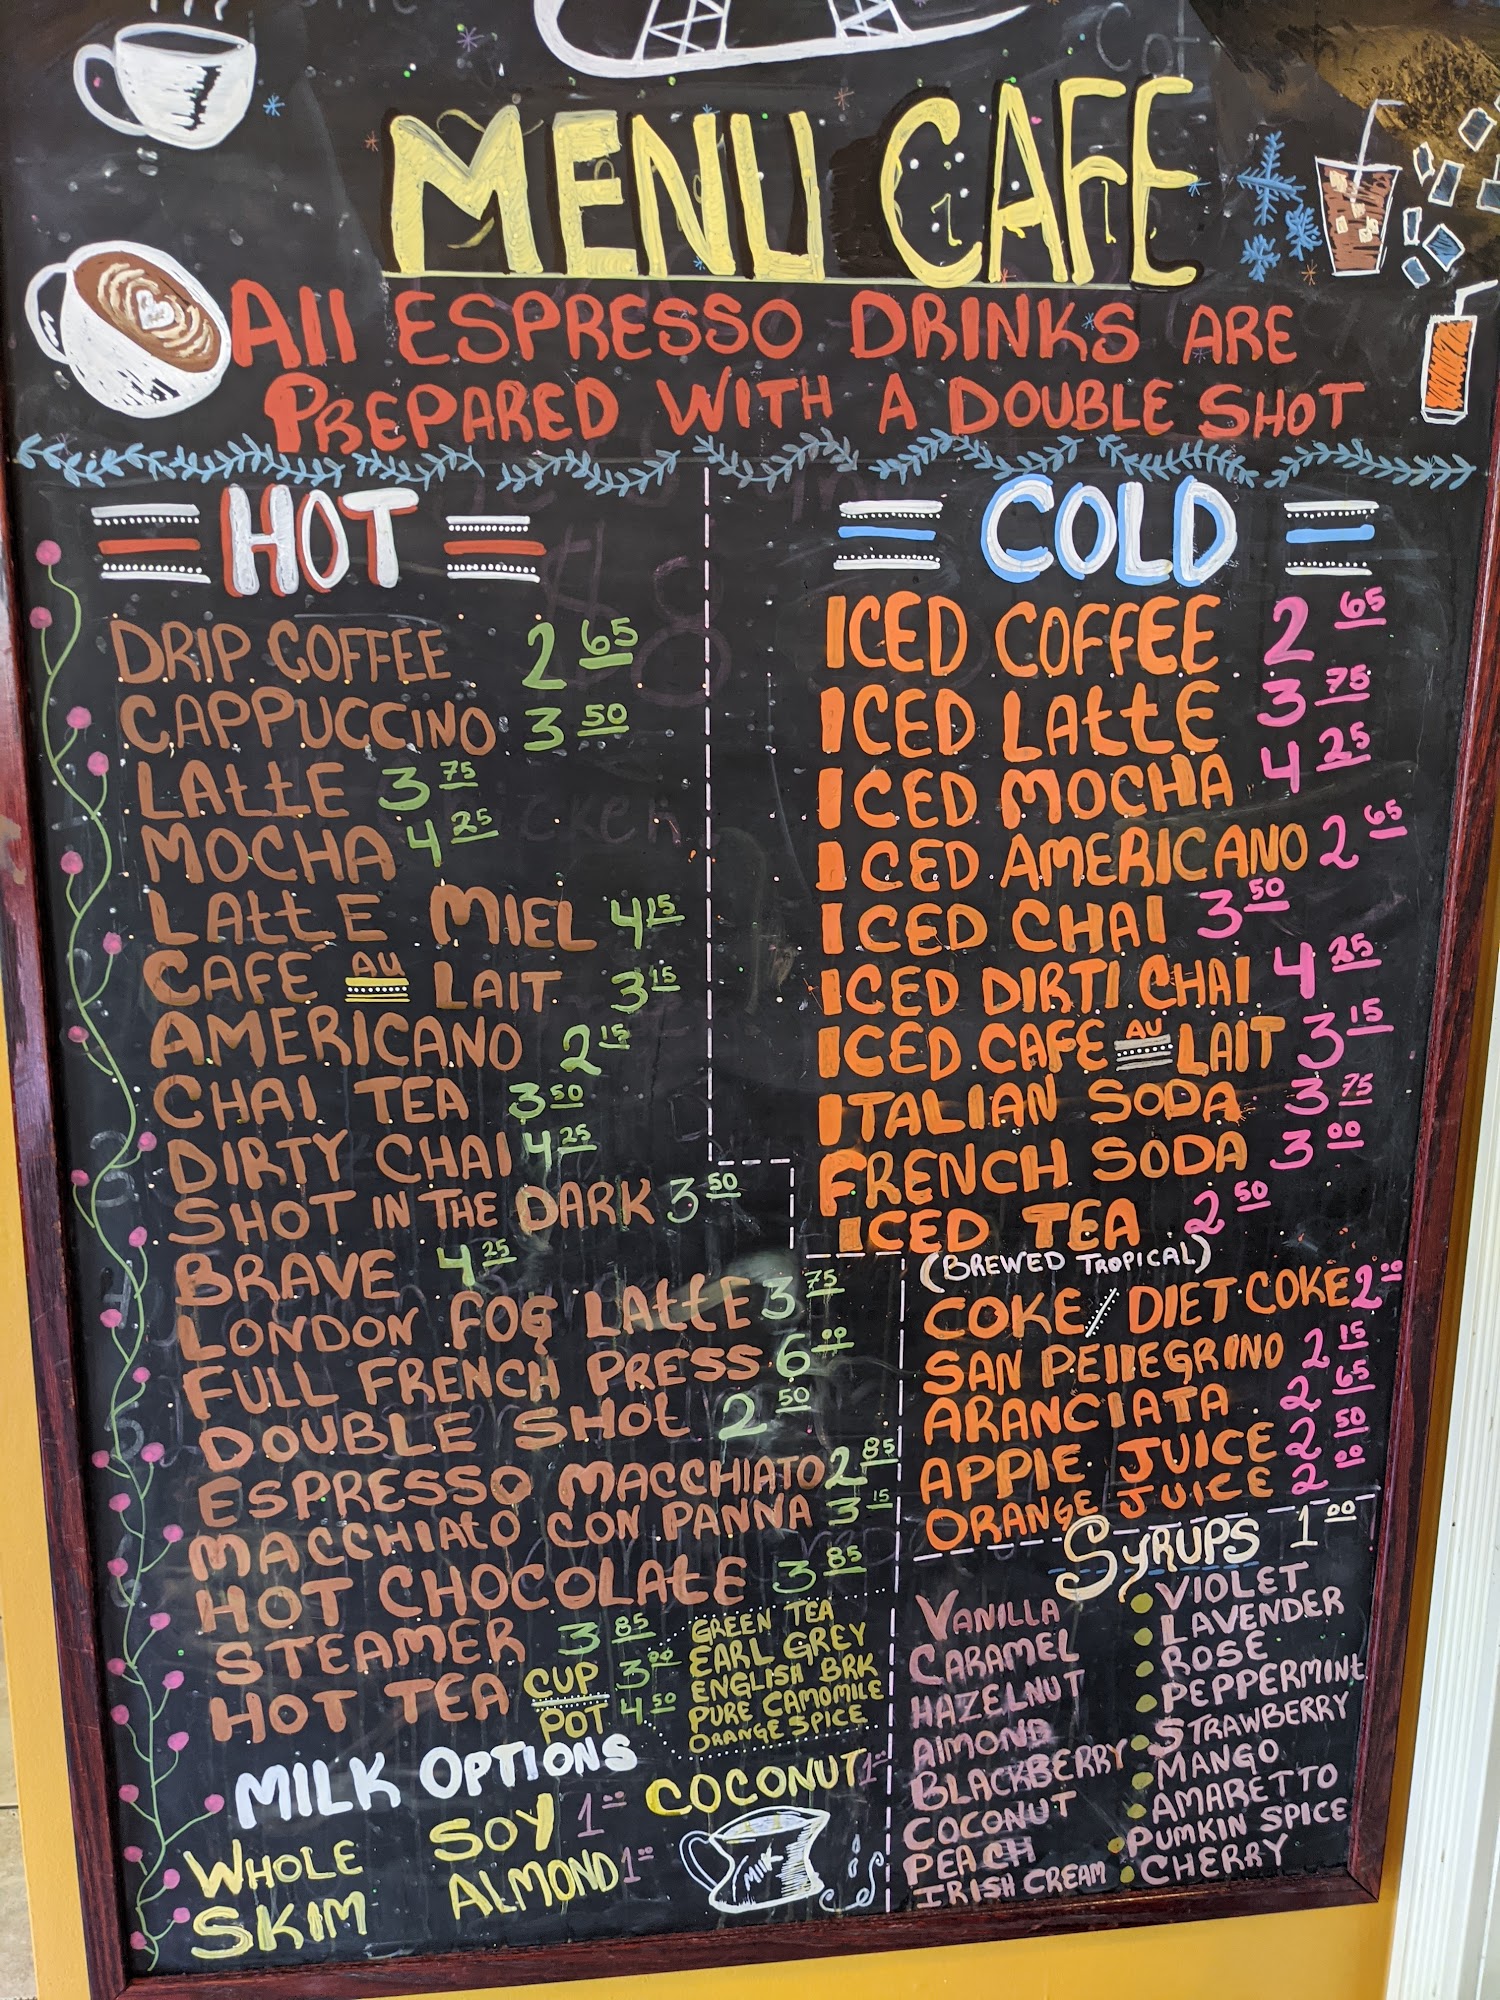 MENU CAFE
All ESPRESSO DRINKS ARE
PREPARED WITH A DOUBLE SHOT
HOT
DRIP COFFEE 2 65
CAPPUCCINO 3 50
LAttE 3 75
MOCHA 4 25
LAttE MIEL 4 15
CAFE AU LAIT 3 15
AMERICANO 2 15
CHAI TEA 3 50
DIRTY CHAI 4 25
SHOT IN THE DARK 3 50
BRAVE 4 25
LONDON FOG LAttE 3 75
FULL FRENCH PRESS 6 00
DOUBLE SHOt 2 50
ESPRESSO MACCHIATO 2 85
MACCHIAtO CON PANNA 3 15
HOT CHOCOLAtE 3 85
STEAMER 3 85
HOT TEA CUP 3 00
POT 4 50
GREEN TEA
EARL GREY
ENGLISH BRK
PURE CAMOMILE
ORANGE SPICE
MILK OPTIONS
WHOLE
SKIM
SOY 1 00
ALMOND 1 00
COCONUT 1
MILK
COLD
ICED COFFEE 2 65
ICED LAttE 3 75
ICED MOCHA 4 25
ICED AMERICANO 2 65
ICED CHAI 3 50
ICED DIRTI CHAI 4 25
ICED CAFE AU LAIT 3 15
ITALIAN SODA 3 75
FRENCH SODA 3 00
ICED TEA 2 50
(BREWED TROPICAL)
COKE / DIET COKE 2 00
SAN PEllEGRINO 2 15
ARANCIATA 2 65
APPlE JUICE 2 50
ORANGE JUICE 2 00
SYRUPS 1 00
VANILLA
CARAMEL
HAZELNUT
AlMOND
BLACKBERRY
COCONUT
PEACH
IRISH CREAM
VIOLET
LAVENDER
ROSE
PEPPERMINt
STRAWBERRY
MANGO
AMARETTO
PUMKIN SPICE
CHERRY